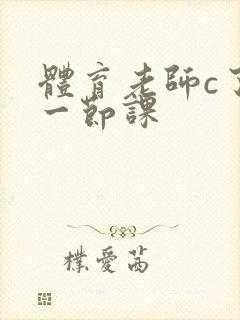 體育老師c了
一節課
樸愛茜